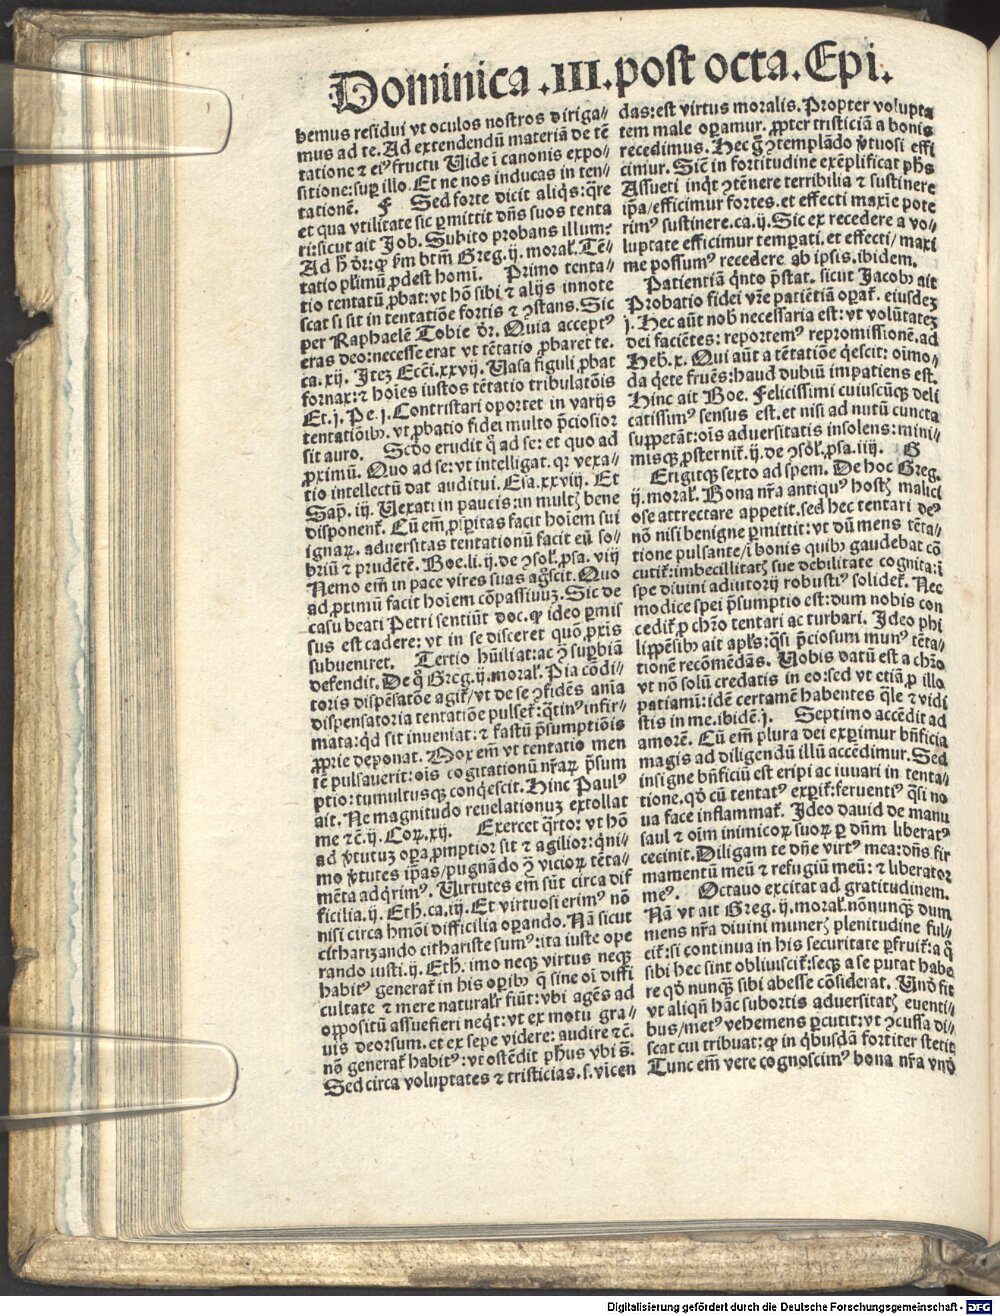 Dominica .III. post octa. Epi.
bemus residui vt oculos nostros diriga⸗
mus ad te. Ad extendendū materiā de tē
tatione ⁊ eiꝰ fructu Uide ī canonis expo⸗
sitione: suꝑ illo. Et ne nos inducas in ten⸗
tationē. F Sed forte dicit aliq̄s: q̄re
et qua vtilitate sic ꝑmittit dn̄s suos tenta
ri: sicut ait Job. Subito probans illum?
Ad h̄ dr̄: ꝙ ẜm btm̄ Greg. ij. moral̓. Tē⸗
tatio plꝛimū ꝓdest homī. Primo tenta⸗
tio tentatū ꝓbat: vt hō sibi ⁊ alijs innote
scat si sit in tentatiōe fortis ⁊ ꝯstans. Sic
per Raphaelē Tobie dr̄. Quia acceptꝰ
eras deo: necesse erat vt tētatio ꝓbaret te.
ca. xij. Itez Ecci. xxvij. Uasa figuli ꝓbat
fornax: ⁊ hoīes iustos tētatio tribulatōis
Et. j. Pe. j. Contristari oportet in varijs
tentatiōibꝫ. vt ꝓbatio fidei multo p̄ciosior
sit auro. Scd̄o erudit q̄ ad se: et quo ad
ꝓximū. Quo ad se: vt intelligat. qꝛ vexa⸗
tio intellectū dat auditui. Esa. xxviij. Et
Sap. iij. Uexati in paucis: in multꝭ bene
disponent̉. Cū em̄ ꝓsꝑitas facit hoīem sui
ignaꝝ. aduersitas tentationū facit eū so⸗
briū ⁊ prudētē. Boe. li. ij. de ꝯsol̓. ꝓsa. viij
Nemo em̄ in pace vires suas agscit. Quo
ad ꝓximū facit hoīem cōpassiuuꝫ. Sic de
casu beati Petri sentiūt doc. ꝙ ideo ꝑmis
sus est cadere: vt in se disceret quō ꝓxīs
subueniret. Tertio hūiliat: ac ꝯ̄ suꝑbiā
defendit. De q̄ Greg. ij. moral̓. Pia cōdi⸗
toris dispēsatōe agit̉/ vt de se ꝯfidēs anīa
dispensatoria tentatiōe pulset̉: q̄tinꝰ infir⸗
mata: qd̄ sit inueniat: ⁊ fastū p̄sumptiōis
ꝓprie deponat. Mox em̄ vt tentatio men
tē pulsauerit: oīs cogitationū nr̄aꝝ p̄sum
ptio: tumultusqꝫ conq̄escit. Hinc Paulꝰ
ait. Ne magnitudo reuelationuꝫ extollat
me ⁊c̄. ij. Coꝝ. xij. Exercet q̄rto: vt hō
ad v̓tutuꝫ oꝑa ꝓmptior sit ⁊ agilior: q̄ni⸗
mo v̓tutes ip̄as/ pugnādo ꝯ̄ vicioꝝ tēta⸗
mēta adq̄rimꝰ. Uirtutes em̄ sūt circa dif
ficilia. ij. Eth. ca. iij. Et virtuosi erimꝰ nō
nisi circa hmōi difficilia oꝑando. Nā sicut
citharizando cithariste sumꝰ: ita iuste ope
rando iusti. ij. Eth. imo neqꝫ virtus neqꝫ
habitꝰ generat̉ in his oꝑibꝫ q̄ sine oī diffi
cultate ⁊ mere naturalr̄ fiūt: vbi agēs ad
oppositū assuefieri neq̄t: vt ex motu gra⸗
uis deorsum. et ex sepe videre: audire ⁊c̄.
nō generat̉ habitꝰ: vt ostēdit ph̄us vbi s̄.
Sed circa voluptates ⁊ tristicias. s. vicen
das: est virtus moralis. Propter volupta
tem male oꝑamur. ꝓpter tristiciā a bonis
recedimus. Hec g̊ ꝯtemplādo v̓tuosi effi
cimur. Sic̄ in fortitudine exēplificat ph̄s
Assueti inq̄t ꝯtēnere terribilia ⁊ sustinere
ip̄a/ efficimur fortes. et effecti maxīe pote
rimꝰ sustinere. ca. ij. Sic ex recedere a vo⸗
luptate efficimur temꝑati. et effecti/ maxi
me possumꝰ recedere ab ipsis. ibidem.
Patientiā q̄nto p̄stat. sicut Jacobꝫ ait
Probatio fidei vr̄e patiētiā oꝑat̉. eiusdeꝫ
j. Hec aūt nob̄ necessaria est: vt volūtateꝫ
dei faciētes: reportemꝰ repromissionē. ad
Heb. x. Qui aūt a tētatiōe q̄escit: oīmo⸗
da q̄ete fruēs: haud dubiū impatiens est.
Hinc ait Boe. Felicissimi cuiuscūqꝫ deli
catissimꝰ sensus est. et nisi ad nutū cuncta
suppetāt: oīs aduersitatis insolens: mini⸗
misqꝫ ꝓsternit̉. ij. de ꝯsol̓. ꝓsa. iiij. G
Erigitqꝫ sexto ad spem. De hoc Greg.
ij. moral̓. Bona nr̄a antiquꝰ hostꝭ malici
ose attrectare appetit. sed hec tentari deꝰ
nō nisi benigne ꝑmittit: vt dū mens tēta⸗
tione pulsante/ ī bonis quibꝫ gaudebat cō
cutit̉: imbecillitatꝭ sue debilitate cognita: ī
spe diuini adiutorij robustiꝰ solidet̉. Nec
modice spei p̄sumptio est: dum nobis con
cedit̉ ꝓ chr̄o tentari ac turbari. Ideo phi
lippēsibꝫ ait apl̓s: q̄si p̄ciosum munꝰ tēta⸗
tionē recōmēdās. Uobis datū est a chr̄o
vt nō solū credatis in eo: sed vt etiā ꝓ illo
patiamī: idē certamē habentes q̄le ⁊ vidi
stis in me. ibidē. j. Septimo accēdit ad
amorē. Cū em̄ plura dei exꝑimur bn̄ficia
magis ad diligendū illū accēdimur. Sed
insigne bn̄ficiū est eripi ac iuuari in tenta⸗
tione. qd̄ cū tentatꝰ exꝑit̉: feruentiꝰ q̄si no
ua face inflammat̉. Ideo dauid de manu
saul ⁊ oīm inimicoꝝ suoꝝ ꝑ dn̄m liberatꝰ
cecinit. Diligam te dn̄e virtꝰ mea: dn̄s fir
mamentū meū ⁊ refugiū meū: ⁊ liberator
meꝰ. Octauo excitat ad gratitudinem.
Nā vt ait Greg. ij. moral̓. nōnunqꝫ dum
mens nr̄a diuini munerꝭ plenitudine ful⸗
cit̉: si continua in his securitate ꝑfruit̉: a q̊
sibi hec sint obliuiscit̉: seqꝫ a se putat habe
re qd̄ nunqꝫ sibi abesse cōsiderat. Und̄ fit
vt aliqn̄ hāc subortis aduersitatꝭ euenti⸗
bus/ metꝰ vehemens ꝑcutit: vt ꝯcussa di⸗
scat cui tribuat: ꝙ in q̄busdā fortiter stetit
Tunc em̄ vere cognoscimꝰ bona nr̄a vnd̄
Digitalisierung gefördert durch die Deutsche Forschungsgemeinschaft - DFG